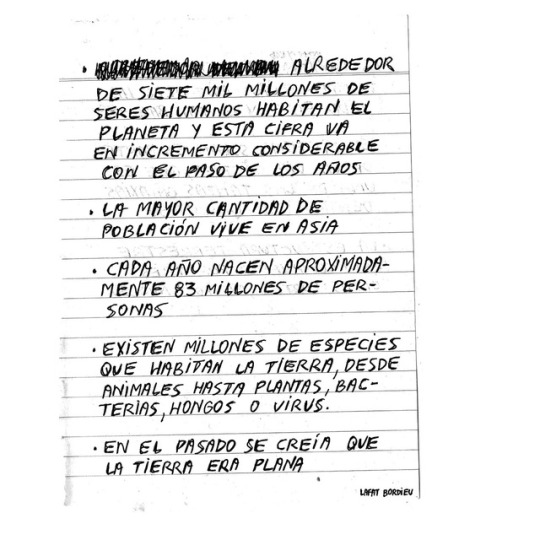 • ALREDEDOR
DE SIETE MIL MILLONES DE
SERES HUMANOS HABITAN EL
PLANETA Y ESTA CIFRA VA
EN INCREMENTO CONSIDERABLE
CON EL PASO DE LOS AÑOS
• LA MAYOR CANTIDAD DE
POBLACIÓN VIVE EN ASIA
• CADA AÑO NACEN APROXIMADA-
MENTE 83 MILLONES DE PER-
SONAS
• EXISTEN MILLONES DE ESPECIES
QUE HABITAN LA TIERRA, DESDE
ANIMALES HASTA PLANTAS, BAC-
TERIAS, HONGOS O VIRUS.
• EN EL PASADO SE CREÍA QUE
LA TIERRA ERA PLANA
LAFAT BORDIEU